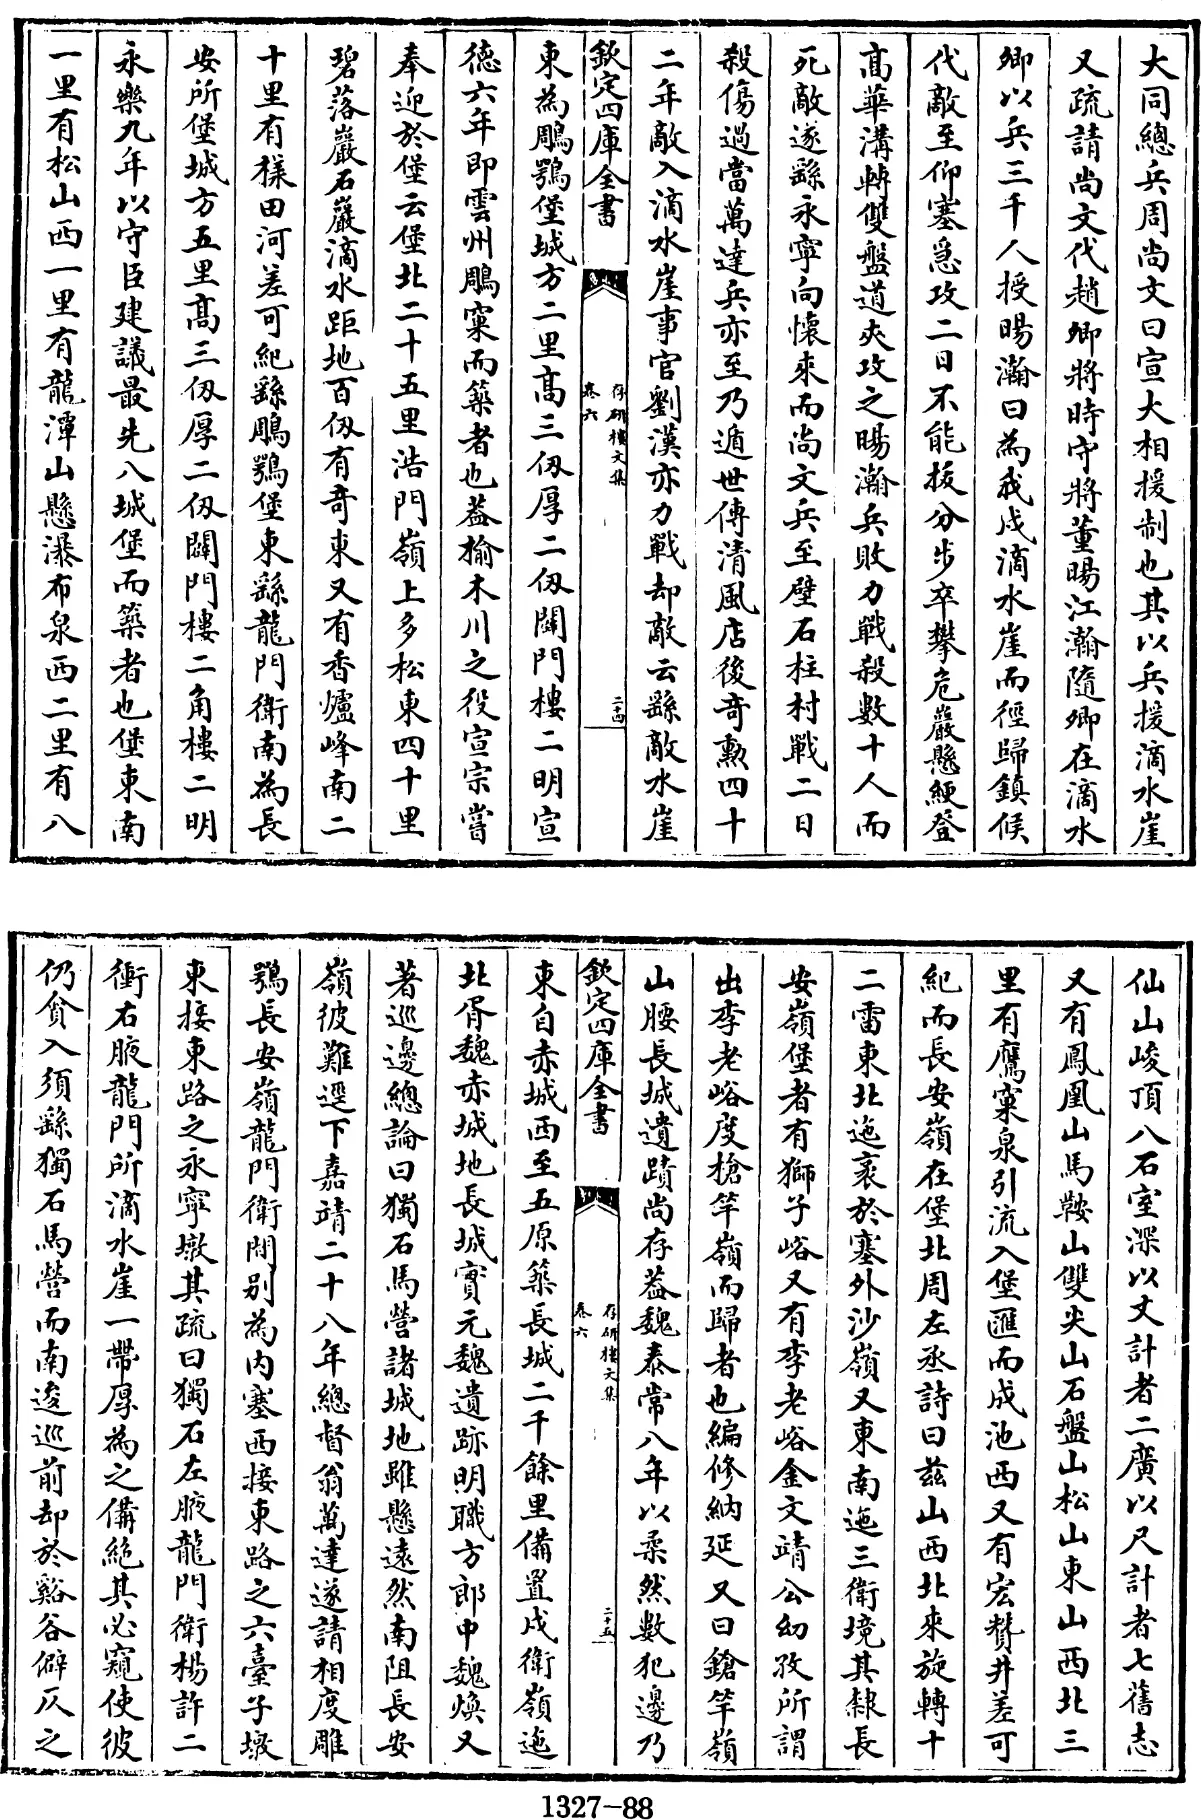 大同總兵周尚文曰宣大相援制也其以兵援滴水崖
又疏請尚文代趙卿將時守將董暘江瀚隨卿在滴水
卿以兵三千人授暘瀚曰為我戍滴水崖而徑歸鎮候
代敵至仰塞急攻二日不能拔分步卒攀危巖懸綆登
高華溝轉雙盤道夾攻之暘瀚兵敗力戰殺數十人而
死敵遂繇永寧向懷來而尚文兵至壁石柱村戰二日
殺傷過當萬達兵亦至乃遁世傳清風店後奇勳四十
二年敵入滴水崖事官劉漢亦力戰却敵云繇敵水崖
欽定四庫全書
存研樓文集
卷六
二十四
東為鵰鶚堡城方二里高三仭厚二仭闢門樓二明宣
德六年即雲州鵰窠而築者也葢榆木川之役宣宗嘗
奉迎於堡云堡北二十五里浩門嶺上多松東四十里
碧落巖石巖滴水距地百仭有奇東又有香爐峰南二
十里有様田河差可紀繇鵰鶚堡東繇龍門衛南為長
安所堡城方五里高三仭厚二仭闢門樓二角樓二明
永樂九年以守臣建議最先八城堡而築者也堡東南
一里有松山西一里有龍潭山懸瀑布泉西二里有八
仙山峻頂八石室深以丈計者二廣以尺計者七舊志
又有鳳凰山馬鞍山雙尖山石盤山松山東山西北三
里有鷹窠泉引流入堡匯而成池西又有宏贊井差可
紀而長安嶺在堡北周左丞詩曰茲山西北來旋轉十
二雷東北迤袤於塞外沙嶺又東南迤三衛境其隸長
安嶺堡者有獅子峪又有李老峪金文靖公幼孜所謂
出李老峪度槍竿嶺而歸者也編修納延又曰鎗竿嶺
山腰長城遺蹟尚存葢魏泰常八年以柔然數犯邊乃
欽定四庫全書
存研樓文集
卷六
二十五
東自赤城西至五原築長城二千餘里備置戍衛嶺迤
北胥魏赤城地長城實元魏遺跡明職方郎中魏煥又
著巡邊總論曰獨石馬營諸城地雖懸遠然南阻長安
嶺彼難逕下嘉靖二十八年總督翁萬達遂請相度雕
鶚長安嶺龍門衛閒别為内塞西接東路之六臺子墩
東接東路之永寧墩其疏曰獨石左腋龍門衛楊許二
衝右腋龍門所滴水崖一帶厚為之備絶其必窺使彼
仍貪入須繇獨石馬營而南逡巡前却於谿谷僻仄之
1327-88